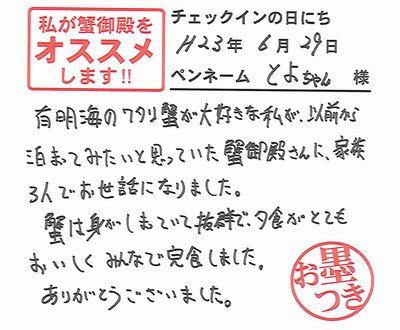 私が蟹御殿を
オススメ
します!!
チェックインの日にち
H23年 6月 29日
ペンネーム とよちゃん 様
有明海のワタリ蟹が大好きな私が、以前から
泊まってみたいと思っていた蟹御殿さんに、家族
3人でお世話になりました。
蟹は身がしまっていて抜群で、夕食がとても
おいしくみんなで完食しました。
ありがとうございました。
お墨
つき